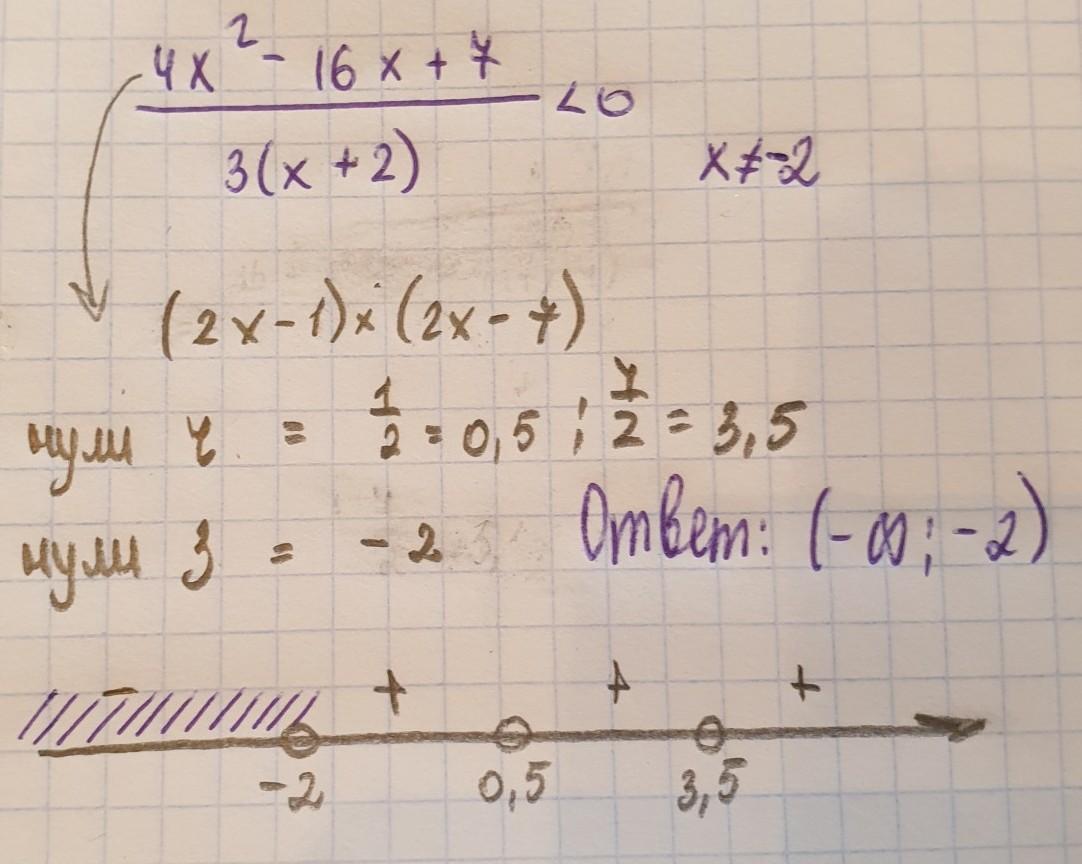 4x² - 16x + 7
3(x + 2)
< 0
x ≠ -2
(2x - 1) × (2x - 7)
нули ч = 1/2 = 0,5 ; 7/2 = 3,5
нули з = - 2
Ответ: (- ∞; - 2)
- + + +
-2 0,5 3,5